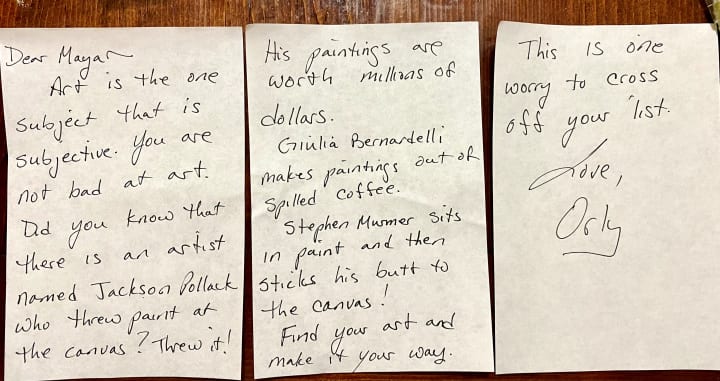 Dear Mayar
Art is the one
subject that is
subjective. You are
not bad at art.
Did you know that
there is an artist
named Jackson Pollack
who threw paint at
the canvas? Threw it!
His paintings are
worth millions of
dollars.
Giulia Bernardelli
makes paintings out of
spilled coffee.
Stephen Murmer sits
in paint and then
sticks his butt to
the canvas!
Find your art and
make it your way.
This is one
worry to cross
off your list.
Love,
Orly